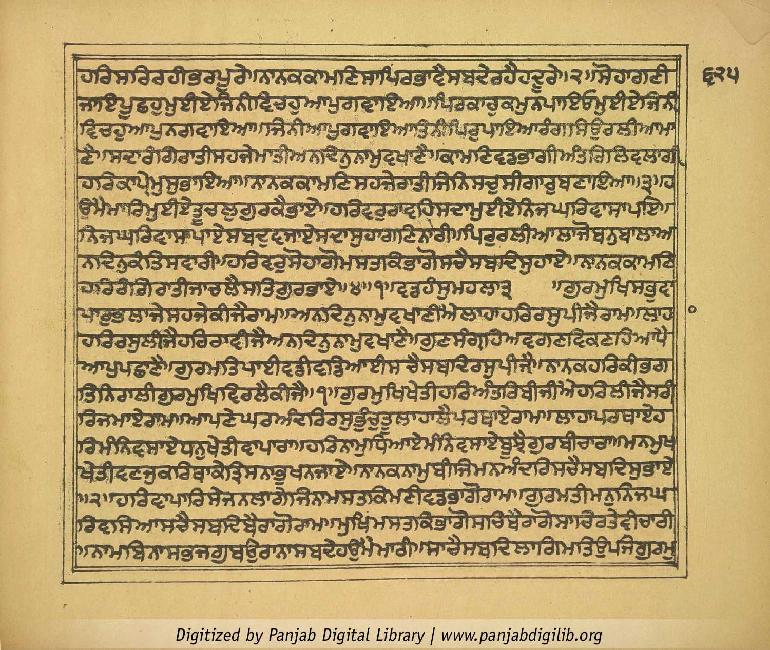 ਹਰਿਸਰਿਰਹੀਭਰਪੂਰੇ॥ਨਾਨਕਕਾਮਣਿਸਾਪਿਰਭਾਵੈਸਬਦੇਰਹੈਹਦੂਰੇ॥੨॥ਸੋਹਾਗਣੀ
੬੨੫
ਜਾਇਪੂਛਹੁਮੁਈਏਜਿਨੀਵਿਚਹੁਆਪੁਗਵਾਇਆ॥ਪਿਰਕਾਹੁਕਮੁਨਪਾਇਓਮੁਈਏਜਿਨੀ
ਵਿਚਹੁਆਪੁਨਗਵਾਇਆ॥ਜਿਨੀਆਪੁਗਵਾਇਆਤਿਨੀਪਿਰੁਪਾਇਆਰੰਗਸਿਉਰਲੀਆਮਾ
ਣੈ॥ਸਦਾਰੰਗਿਰਾਤੀਸਹਜੇਮਾਤੀਅਨਦਿਨੁਨਾਮੁਵਖਾਣੈ॥ਕਾਮਣਿਵਡਭਾਗੀਅੰਤਰਿਲਿਵਲਾਗੀ
ਹਰਿਕਾਪ੍ਰੇਮੁਸੁਭਾਇਆ॥ਨਾਨਕਕਾਮਣਿਸਹਜੇਰਾਤੀਜਿਨਿਸਚੁਸੀਗਾਰੁਬਣਾਇਆ॥੩॥ਹ
ਉਮੈਮਾਰਿਮੁਈਏਤੂਚਲੁਗੁਰਕੈਭਾਏ॥ਹਰਿਵਰੁਰਾਵਹਿਸਦਾਮੁਈਏਨਿਜਘਰਿਵਾਸਾਪਾਏ॥
ਨਿਜਘਰਿਵਾਸਾਪਾਏਸਬਦੁਵਜਾਏਸਦਾਸੁਹਾਗਣਿਨਾਰੀ॥ਪਿਰੁਰਲੀਆਲਾਜੋਬਨੁਬਾਲਾਅ
ਨਦਿਨੁਕੰਤਿਸਵਾਰੀ॥ਹਰਿਵਰੁਸੋਹਾਗੋਮਸਤਕਿਭਾਗੋਸਚੈਸਬਦਿਸੁਹਾਏ॥ਨਾਨਕਕਾਮਣਿ
ਹਰਿਰੰਗਿਰਾਤੀਜਾਚਲੈਸਤਿਗੁਰਭਾਏ॥੪॥੧॥ਵਡਹੰਸੁਮਹਲਾ੩ ॥ਗੁਰਮੁਖਿਸਭੁਵਾ
ਪਾਰੁਭਲਾਜੇਸਹਜੇਕੀਜੈਰਾਮ॥ਅਨਦਿਨੁਨਾਮੁਵਖਾਣੀਐਲਾਹਾਹਰਿਰਸੁਪੀਜੈਰਾਮ॥ਲਾਹਾ
ਹਰਿਰਸੁਲੀਜੈਹਰਿਰਾਵੀਜੈਅਨਦਿਨੁਨਾਮੁਵਖਾਣੈ॥ਗੁਣਸੰਗ੍ਰਹਿਅਵਗਣਵਿਕਣਹਿਆਪੈ
ਆਪੁਪਛਾਣੈ॥ਗੁਰਮਤਿਪਾਈਵਡੀਵਡਿਆਈਸਚੈਸਬਦਿਰਸੁਪੀਜੈ॥ਨਾਨਕਹਰਿਕੀਭਗ
ਤਿਨਿਰਾਲੀਗੁਰਮੁਖਿਵਿਰਲੈਕੀਜੈ॥੧॥ਗੁਰਮੁਖਿਖੇਤੀਹਰਿਅੰਤਰਿਬੀਜੀਐਹਰਿਲੀਜੈਸਰੀ
ਰਿਜਮਾਏਰਾਮ॥ਆਪਣੇਘਰਅੰਦਰਿਰਸੁਭੁੰਚੁਤੂਲਾਹਾਲੈਪਰਥਾਏਰਾਮ॥ਲਾਹਾਪਰਥਾਏਹ
ਰਿਮੰਨਿਵਸਾਏਧਨੁਖੇਤੀਵਾਪਾਰਾ॥ਹਰਿਨਾਮੁਧਿਆਏਮੰਨਿਵਸਾਏਬੂਝੈਗੁਰਬੀਚਾਰਾ॥ਮਨਮੁਖ
ਖੇਤੀਵਣਜੁਕਰਿਥਾਕੇਤ੍ਰਿਸਨਾਭੁਖਨਜਾਏ॥ਨਾਨਕਨਾਮੁਬੀਜਿਮਨਅੰਦਰਿਸਚੈਸਬਦਿਸੁਭਾਏ
॥੨॥ਹਰਿਵਾਪਾਰਿਸੇਜਨਲਾਗੇਜਿਨਾਮਸਤਕਿਮਣੀਵਡਭਾਗੋਰਾਮ॥ਗੁਰਮਤੀਮਨੁਨਿਜਘ
ਰਿਵਸਿਆਸਚੈਸਬਦਿਬੈਰਾਗੋਰਾਮ॥ਮੁਖਿਮਸਤਕਿਭਾਗੋਸਾਚਿਬੈਰਾਗੋਸਾਚਿਰਤੇਵੀਚਾਰੀ
॥ਨਾਮਬਿਨਾਸਭੁਜਗੁਬਉਰਾਨਾਸਬਦੇਹਉਮੈਮਾਰੀ॥ਸਾਚੈਸਬਦਿਲਾਗਿਮਤਿਉਪਜੈਗੁਰਮੁ
Digitized by Panjab Digital Library | www.panjabdigilib.org